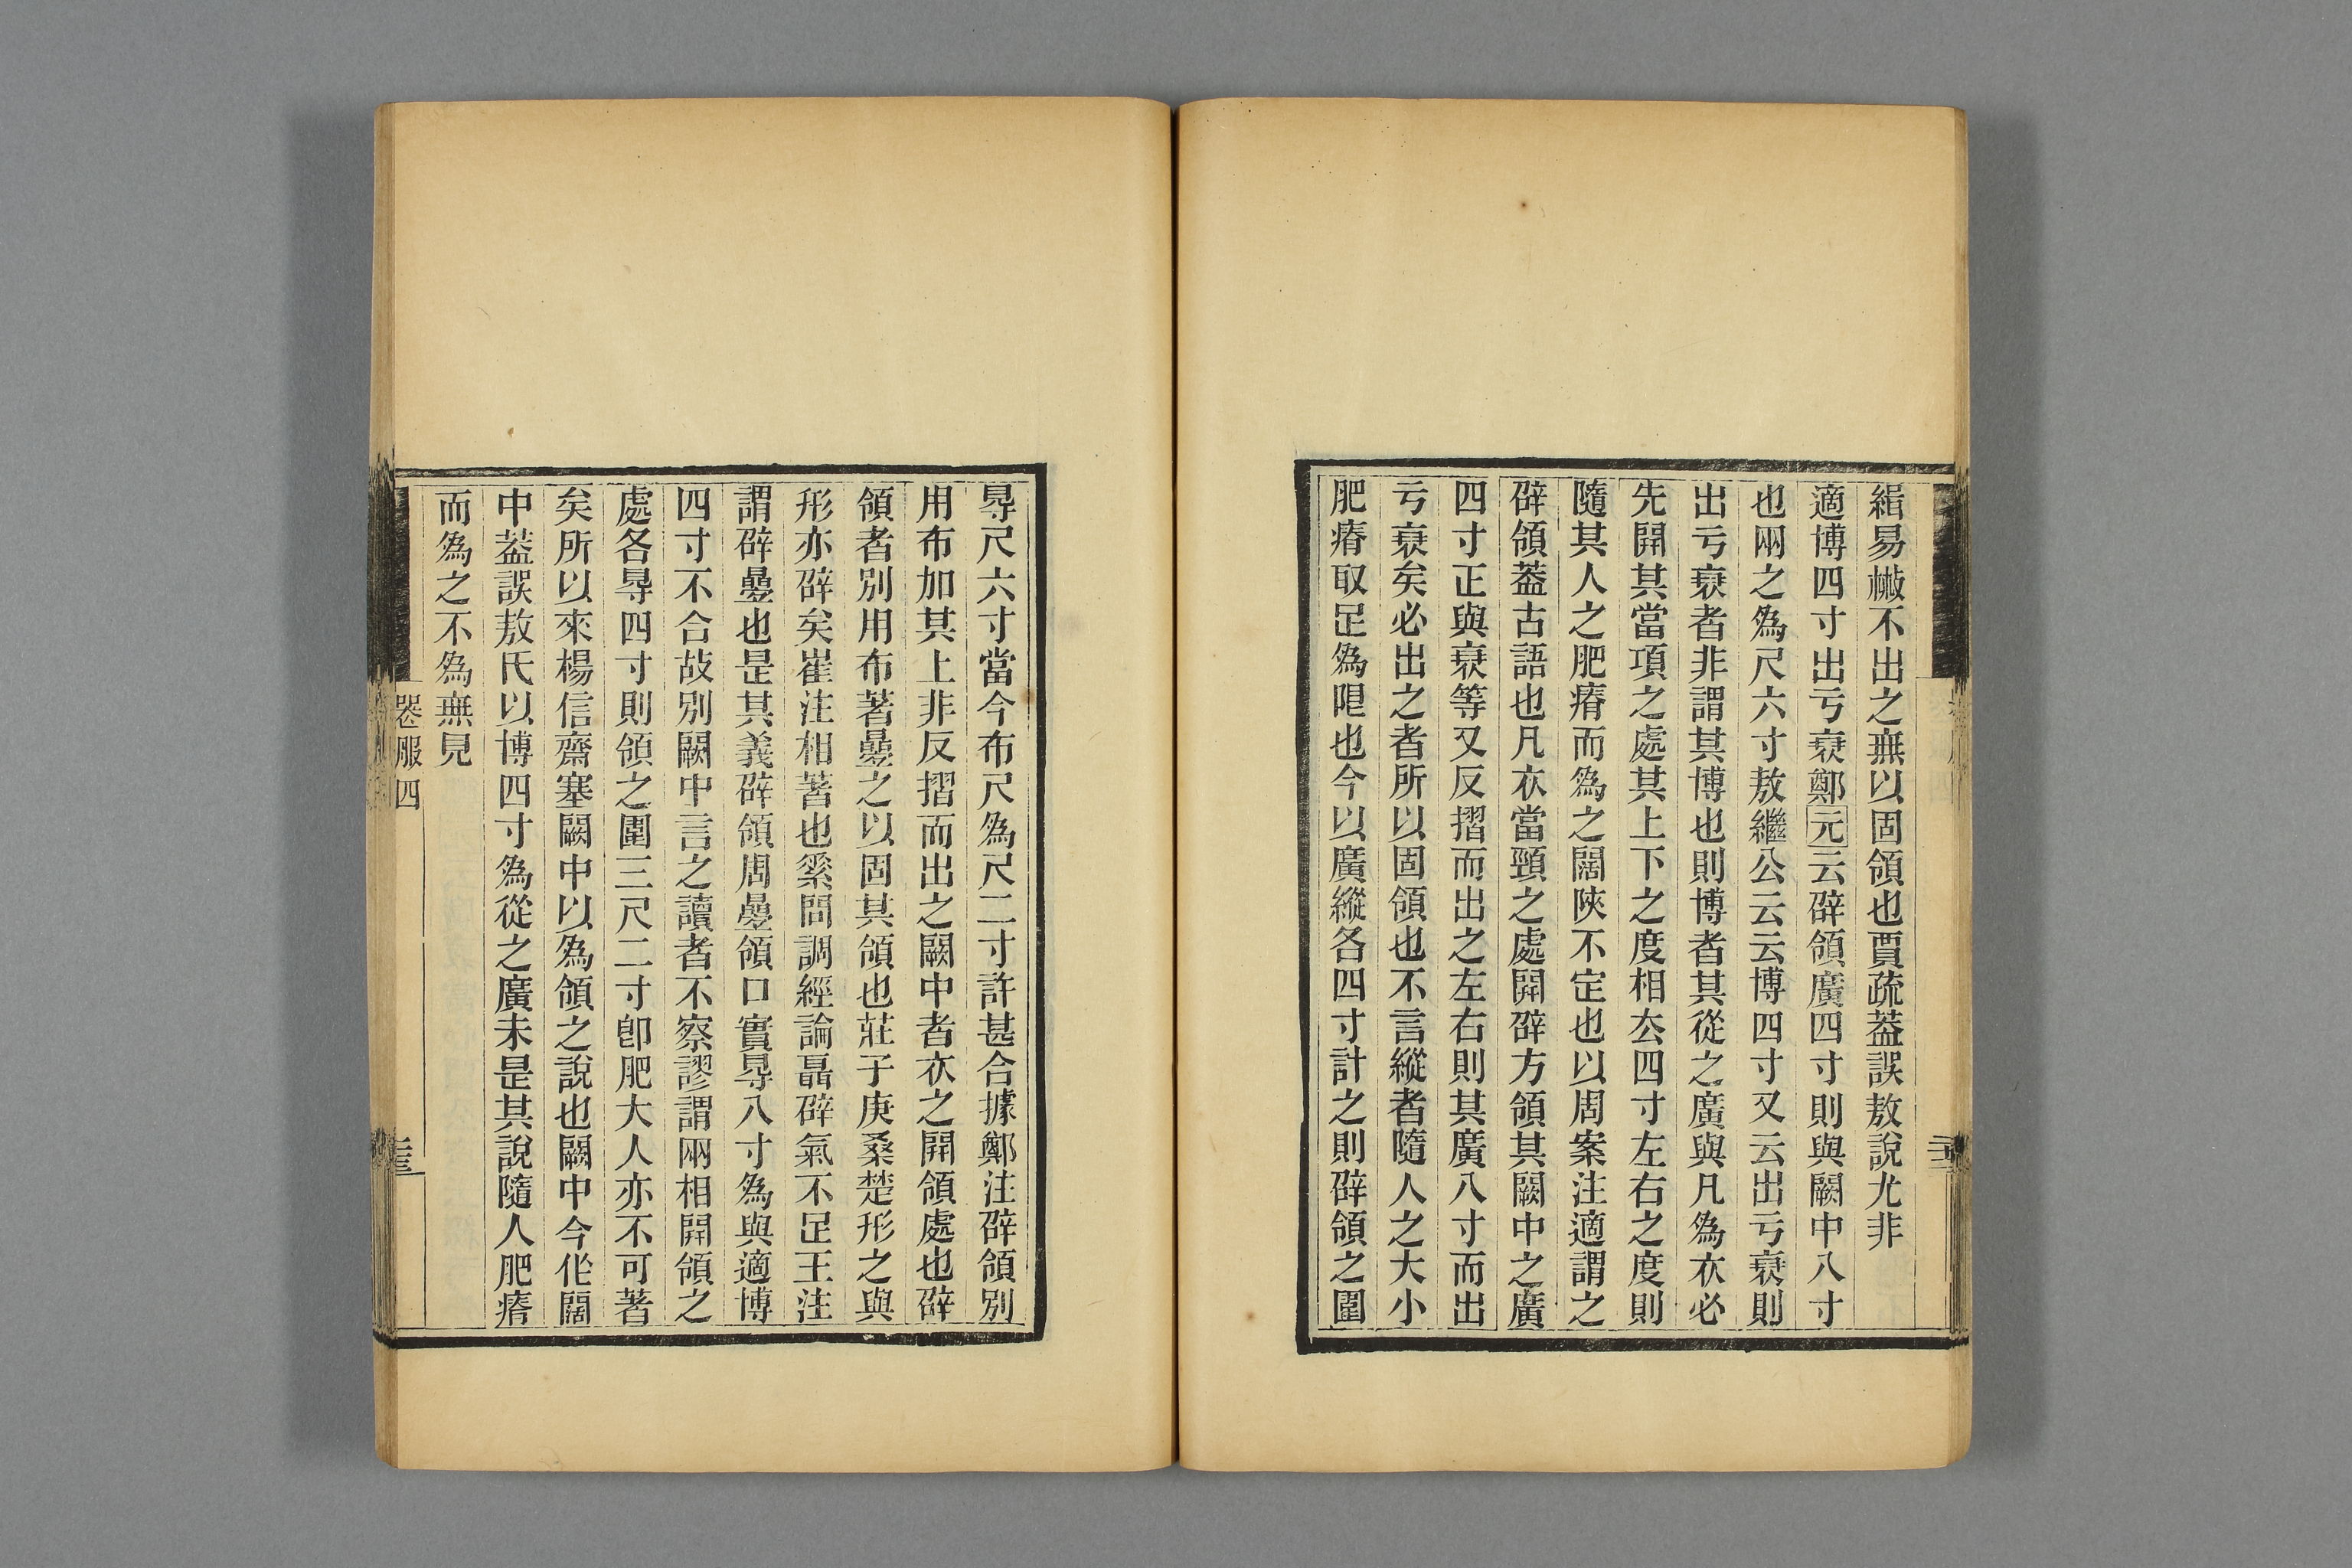 緝易㡀不出之無以固領也賈疏葢誤敖說尤非
適博四寸出亏衰鄭元云辟領廣四寸則與闕中八寸
也兩之爲尺六寸敖繼公云云博四寸又云出亏衰則
出亏衰者非謂其博也則博者其從之廣與凡爲衣必
先開其當項之處其上下之度相厺四寸左右之度則
隨其人之肥瘠而爲之闊陜不定也以周案注適謂之
辟領葢古語也凡衣當頸之處開辟方領其闕中之廣
四寸正與衰等又反摺而出之左右則其廣八寸而出
亏衰矣必出之者所以固領也不言縱者隨人之大小
肥瘠取足爲限也今以廣縱各四寸計之則辟領之圍
㝵尺六寸當今布尺爲尺二寸許甚合據鄭注辟領別
用布加其上非反摺而出之闕中者衣之開領處也辟
領者別用布著疊之以固其領也莊子庚桑楚形之與
形亦辟矣崔注相著也素問調經論聶辟氣不足王注
謂辟疊也是其義辟領周疊領口實㝵八寸爲與適博
四寸不合故別闕中言之讀者不察謬謂兩相開領之
處各㝵四寸則領之圍三尺二寸卽肥大人亦不可著
矣所以來楊信齋塞闕中以爲領之說也闕中今作闊
中葢誤敖氏以博四寸爲從之廣未是其說隨人肥瘠
而爲之不爲無見
服四